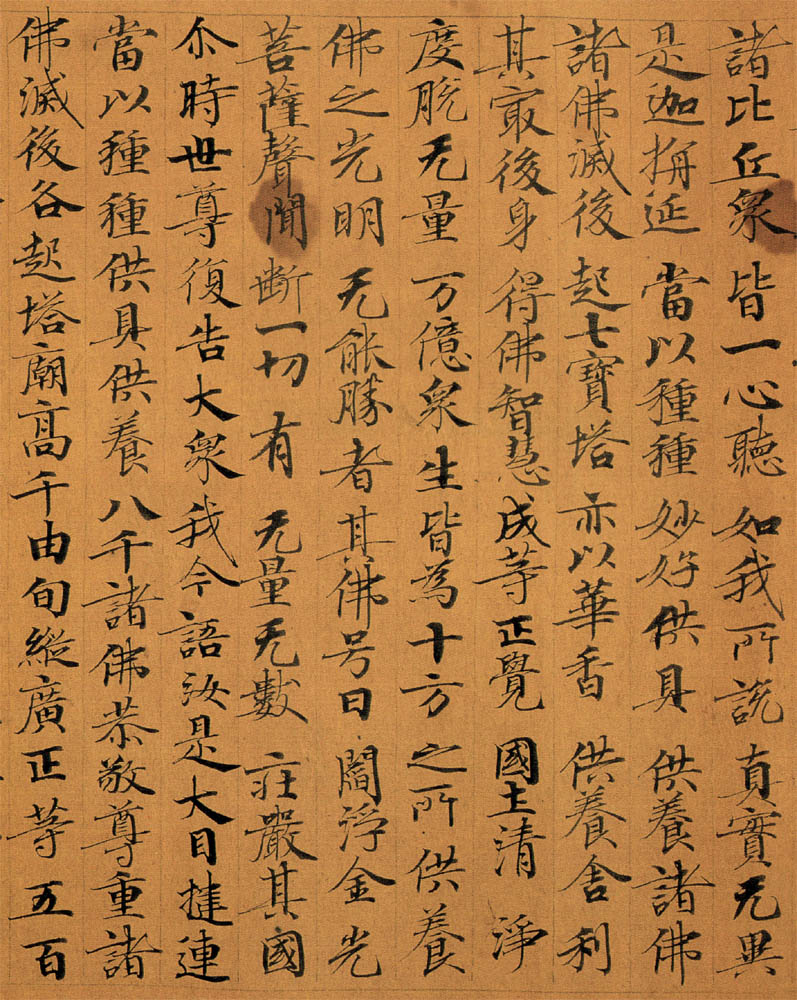 諸比丘衆皆一心聽如我所說真實无異
是迦旃延當以種種妙好供具供養諸佛
諸佛滅後起七寶塔亦以華香供養舍利
其冣後身得佛智慧成等正覺國土清淨
度脫无量万億衆生皆為十方之所供養
佛之光明无能勝者其佛号曰閻浮金光
菩薩聲聞斷一切有无量无數莊嚴其國
尒時世尊復告大衆我今語汝是大目揵連
當以種種供具供養八千諸佛恭敬尊重諸
佛滅後各起塔廟高千由旬縱廣正等五百